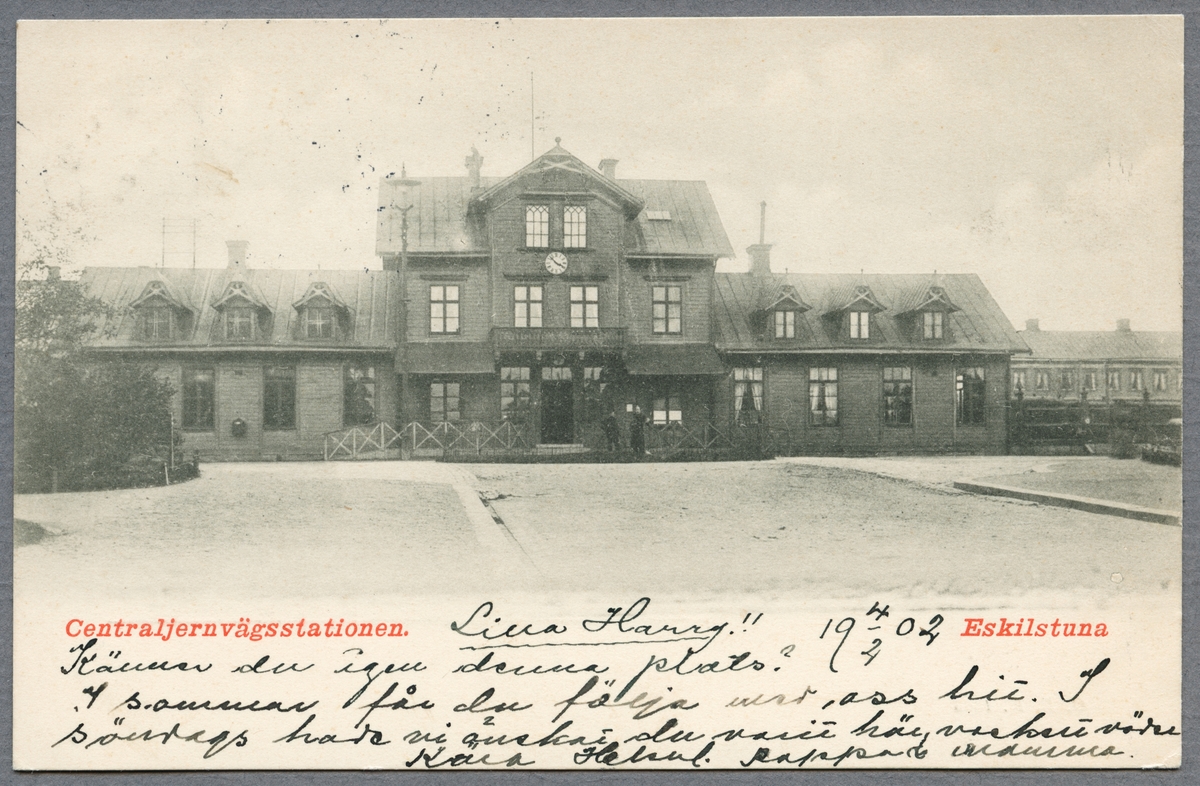 Centraljernvägsstationen. Lilla Harry!! 19 4/2 02 Eskilstuna
Känner du igen denna plats?
I sommar får du följa med oss hit. I
söndags hade vi önskat du varit här, vackert väder
Kära Hels. Pappa & mamma.